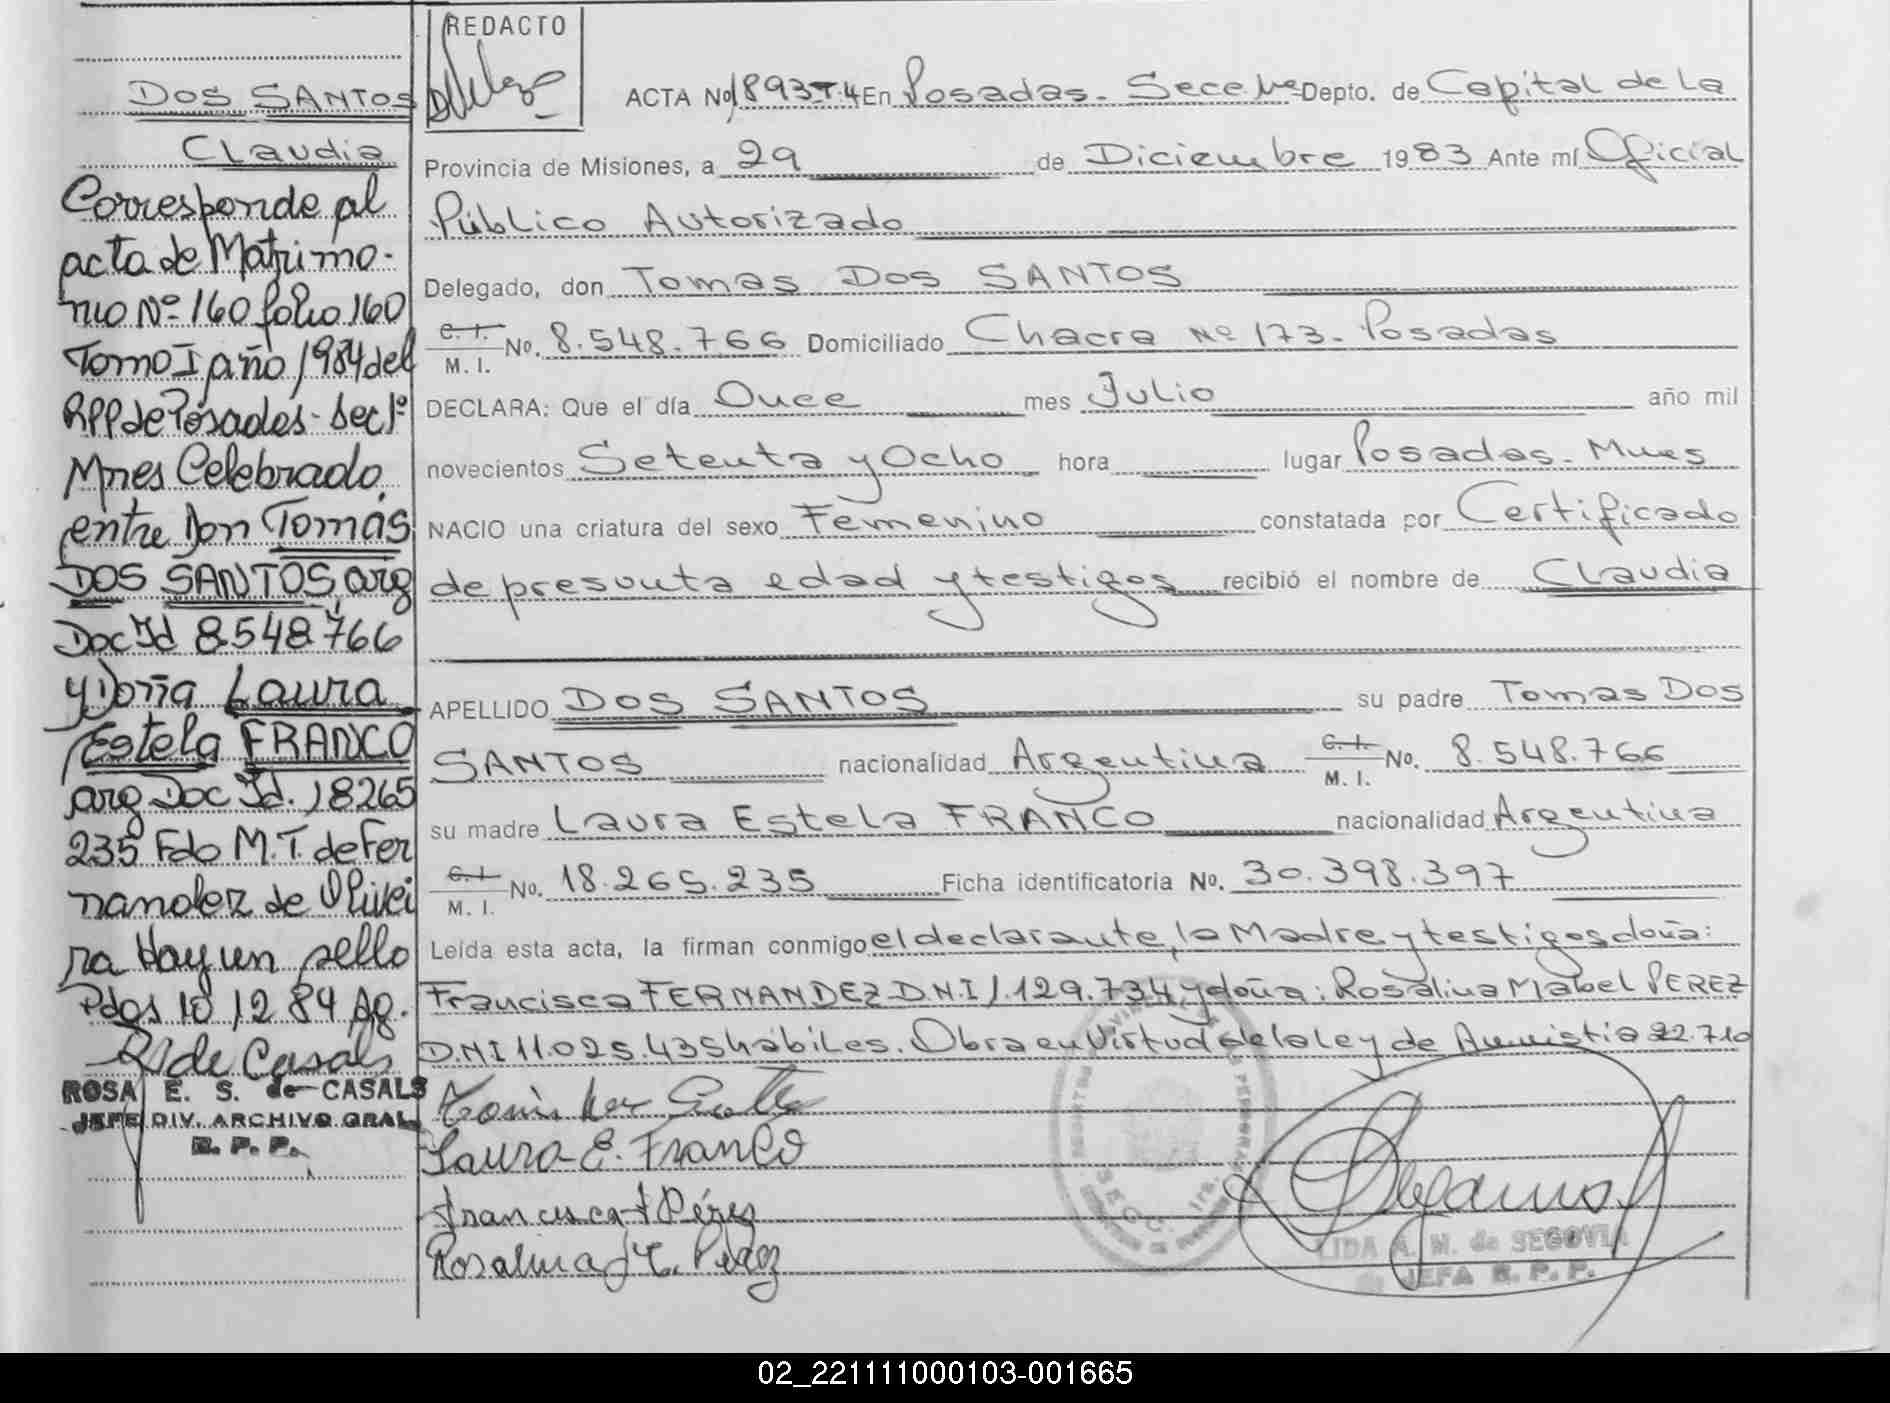 REDACTO
DOS SANTOS
Claudia
Corresponde al
acta de Matrimo-
nio Nº 160 folio 160
Tomo I año 1984 del
RPP de Posadas - Sec 1º
Mnes Celebrado
entre Don Tomás
DOS SANTOS, arg
Doc Id 8.548.766
y Doña Laura
Estela FRANCO
arg Doc Id. 18265
235 Fdo M.T. de Fer
nandez de Olivei
ra Hay un sello
Pdas 10 12 84 Ag.
R S de Casals
ROSA E. S. de CASALS
JEFE DIV. ARCHIVO GRAL
R. P. P.
ACTA No 1893 T.4 En Posadas. Secc 1ra Depto. de Capital de La
Provincia de Misiones, a 29 de Diciembre 1983 Ante mí Oficial
Público Autorizado
Delegado, don Tomas Dos SANTOS
C. I.
M. I. No. 8.548.766 Domiciliado Chacra Nº 173. Posadas
DECLARA: Que el día Once mes Julio año mil
novecientos Setenta y Ocho hora lugar Posadas. Mnes
NACIO una criatura del sexo Femenino constatada por Certificado
de presunta edad y testigos recibió el nombre de Claudia
APELLIDO DOS SANTOS su padre Tomas Dos
SANTOS nacionalidad Argentina C. I. M. I. No. 8.548.766
su madre Laura Estela FRANCO nacionalidad Argentina
C. I. M. I. No. 18.265.235 Ficha identificatoria No. 30.398.397
Leída esta acta, la firman conmigo el declarante, la Madre y testigos doña:
Francisca FERNANDEZ D.N.I 1.129.734 y doña: Rosalina Mabel PEREZ
D.N.I 11.025.435 hábiles. Obra en Virtud de la ley de Amnistia 22.710
Laura E. Franco
Francisca F Pérez
Rosalina M. Perez
LIDA A. M. de SEGOVIA
JEFA R. P. P.
02_221111000103-001665